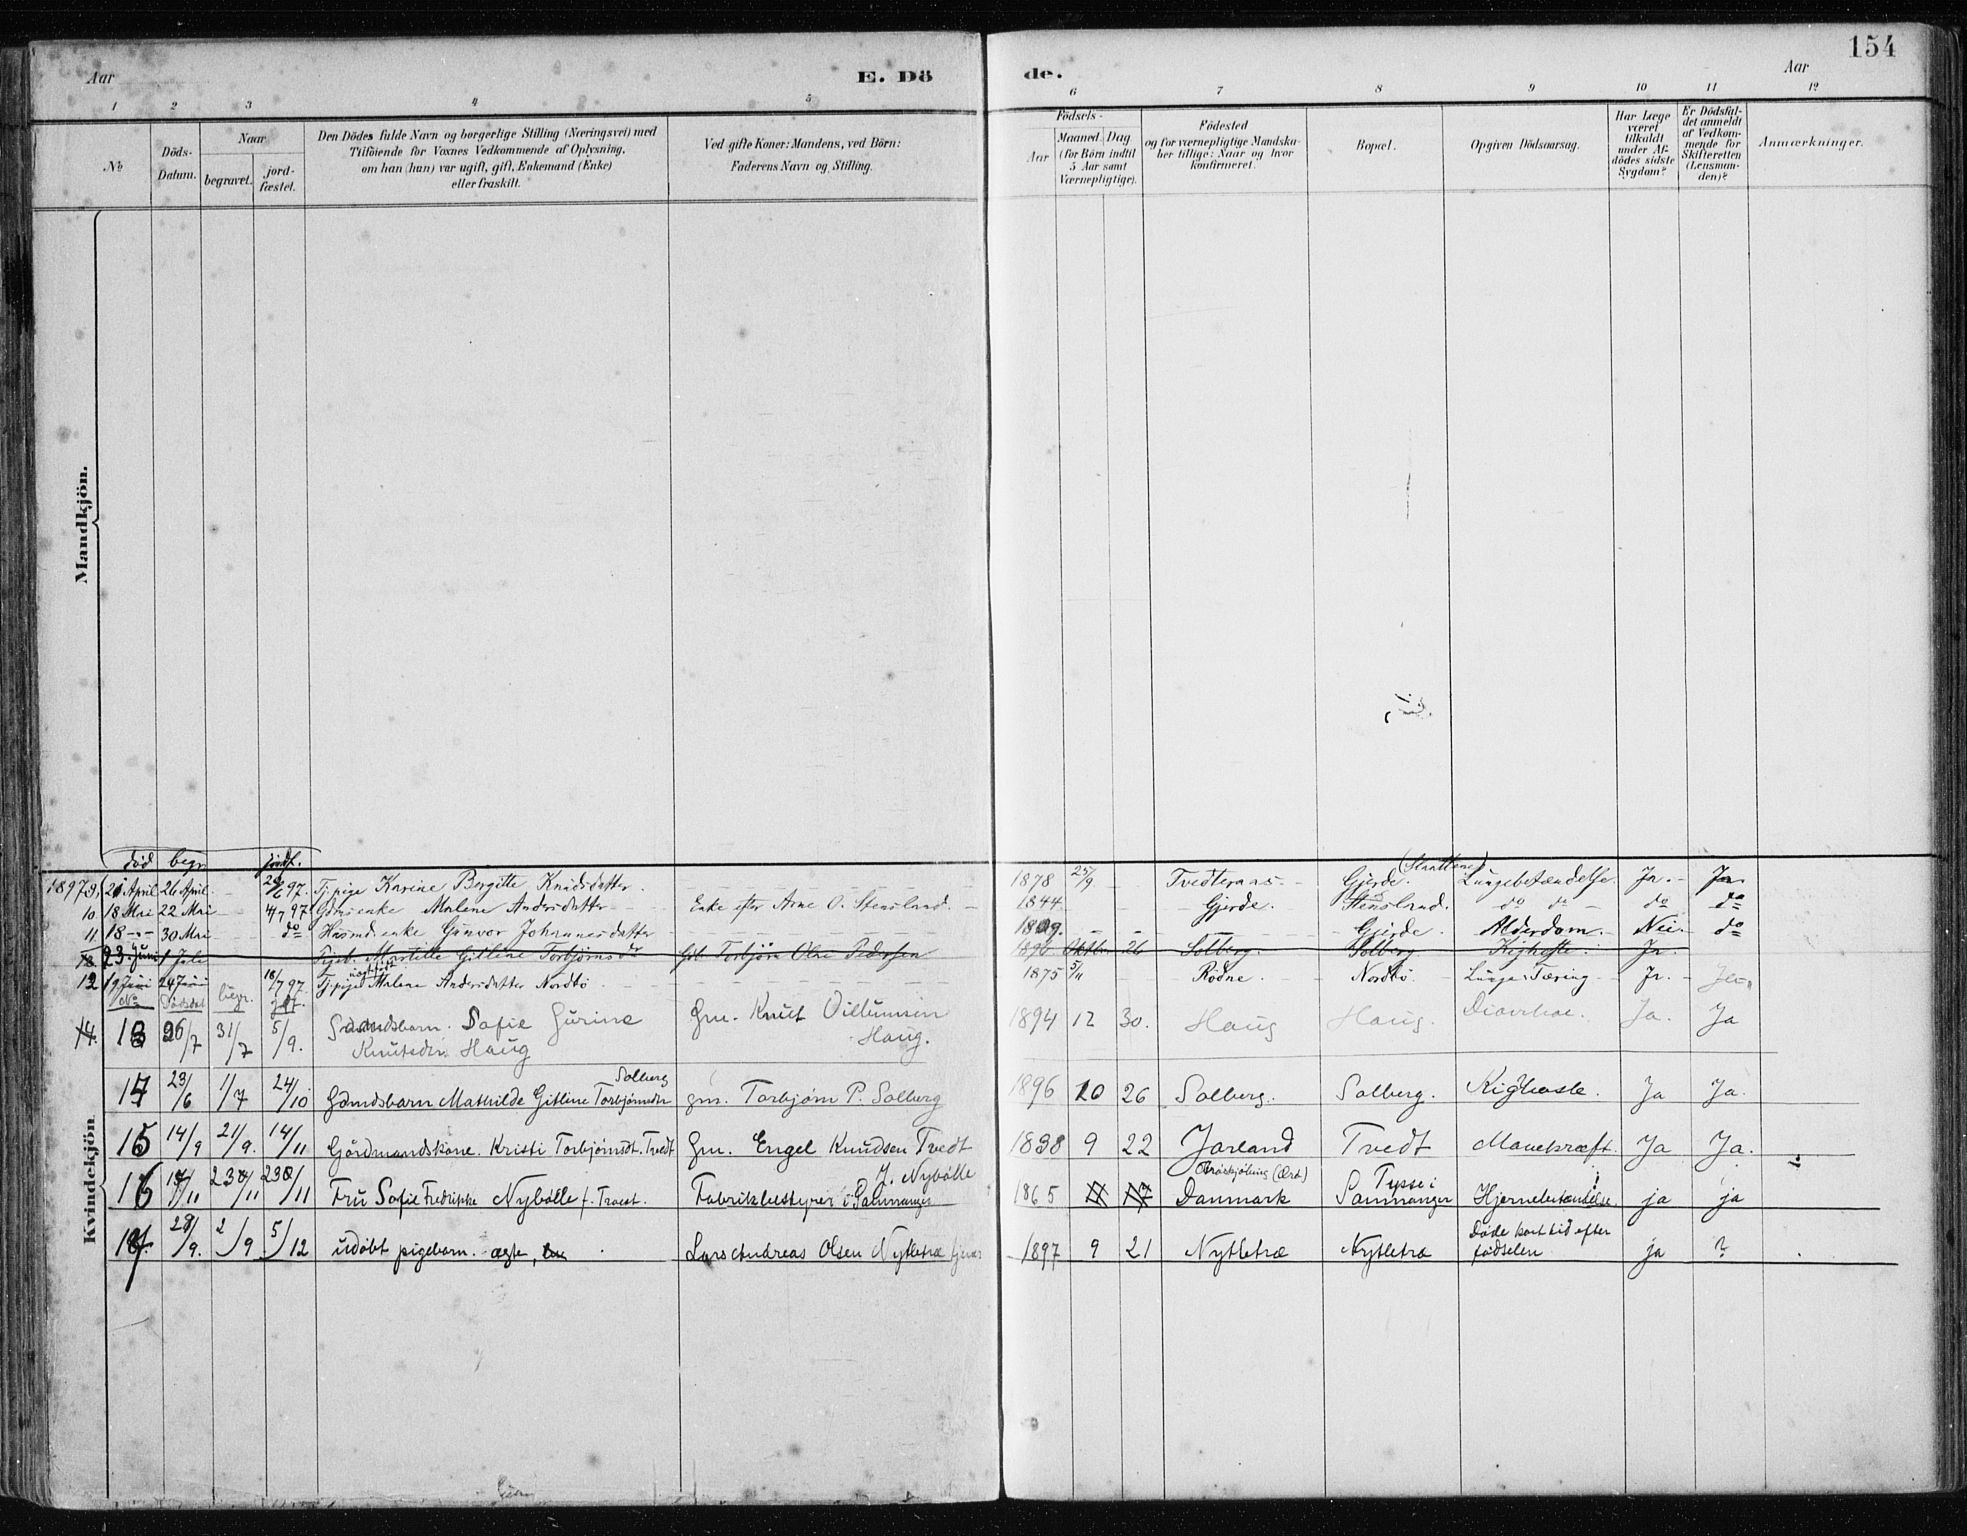 154
Aar E. Dö de. Aar
1 2 3 4 5 6 7 8 9 10 11 12
No
Döds-Datum.
Naar
begravet.
jord-fæstet.
Den Dödes fulde Navn og borgerlige Stilling (Næringsvei) med
Tilföiende for Voxnes Vedkommende af Oplysning,
om han (hun) var ugift, gift, Enkemand (Enke)
eller fraskilt.
Ved gifte Koner: Mandens, ved Börn:
Faderens Navn og Stilling.
Födsels-
Aar
Maaned. Dag
(for Börn indtil
5 Aar samt
Værnepligtige).
Födested
og for værnepligtige Mandska-
ber tillige: Naar og hvor
konfirmeret.
Bopæl.
Opgiven Dödsaarsag.
Har Læge
været
tilkaldt
under Af-
dödes sidste
Sygdom?
Er Dödsfal-
det anmeldt
af Vedkom-
mende for
Skifteretten
(Lensman-
den)?
Anmærkninger.
Mandkjön.
Kvindekjön
död begr jordf.
1897 9. 21 April 26 April 97. Tj.pige Karine Bergitte Knudsdatter. 1878 25/9 Tvedteraas Gjerde. Lungebetændelse. Ja. Ja.
10 18 Mai 22 Mai 4/7 97 Gdmdsenke Malene Andersdatter Enke efter Arne O. Stensland. 1844 Gjerde. Stensland. do do do do
11 18 - 30 Mai do Husmdsenke Gunvor Johannesdatter Gjerde. Alderdom. Nei. do
23 Juni 1 Juli Martille Gitline Torbjørnsdr Torbjørn Olai Pedersen 1896 Oktbr. 26 Solberg. Solberg Kighoste. Ja.
12 19 Juni 24 Juni 18/7 97 Tj.pige Malene Andersdatter Nordbö 1875 5/11 Rödne. Nordbö. Lunge Tæring Ja.
No Dödsdat begr. jdf.
14. 13 26/7 31/7 5/9. Gaardmdsbarn. Sofie Gurine Gm. Knut Villumsen 1894 12 30. Haug Haug. Diarrhoe. Ja. Ja
Knutsdtr Haug Haug.
14 23/6 1/7 24/10 Gdmdsbarn Mathilde Gitline Torbjørnsdtr Solberg gm. Torbjørn P. Solberg 1896 10 26 Solberg. Solberg. Kighoste. Ja Ja.
15 14/9 21/9. 14/11 Gårdmandskone. Kristi Torbjørnsdt. Tvedt Gm. Engel Knudsen Tvedt 1838 9 22 Jarland Tvedt Mavekræft. Ja Ja.
16 Fru Sofie Fredrikke Nybölle f. Fabrikbestyrer i Samnanger J. Nybölle 1865 Danmark Tysse i Samnanger Hjernebetændelse. ja ja
2/9 5/12 udöbt pigebarn. ægte, Lars Andreas Olsen Nytletræ 1897 9 21 Nytletræ Nytletræ Döde kort tid efter födselen ja ?